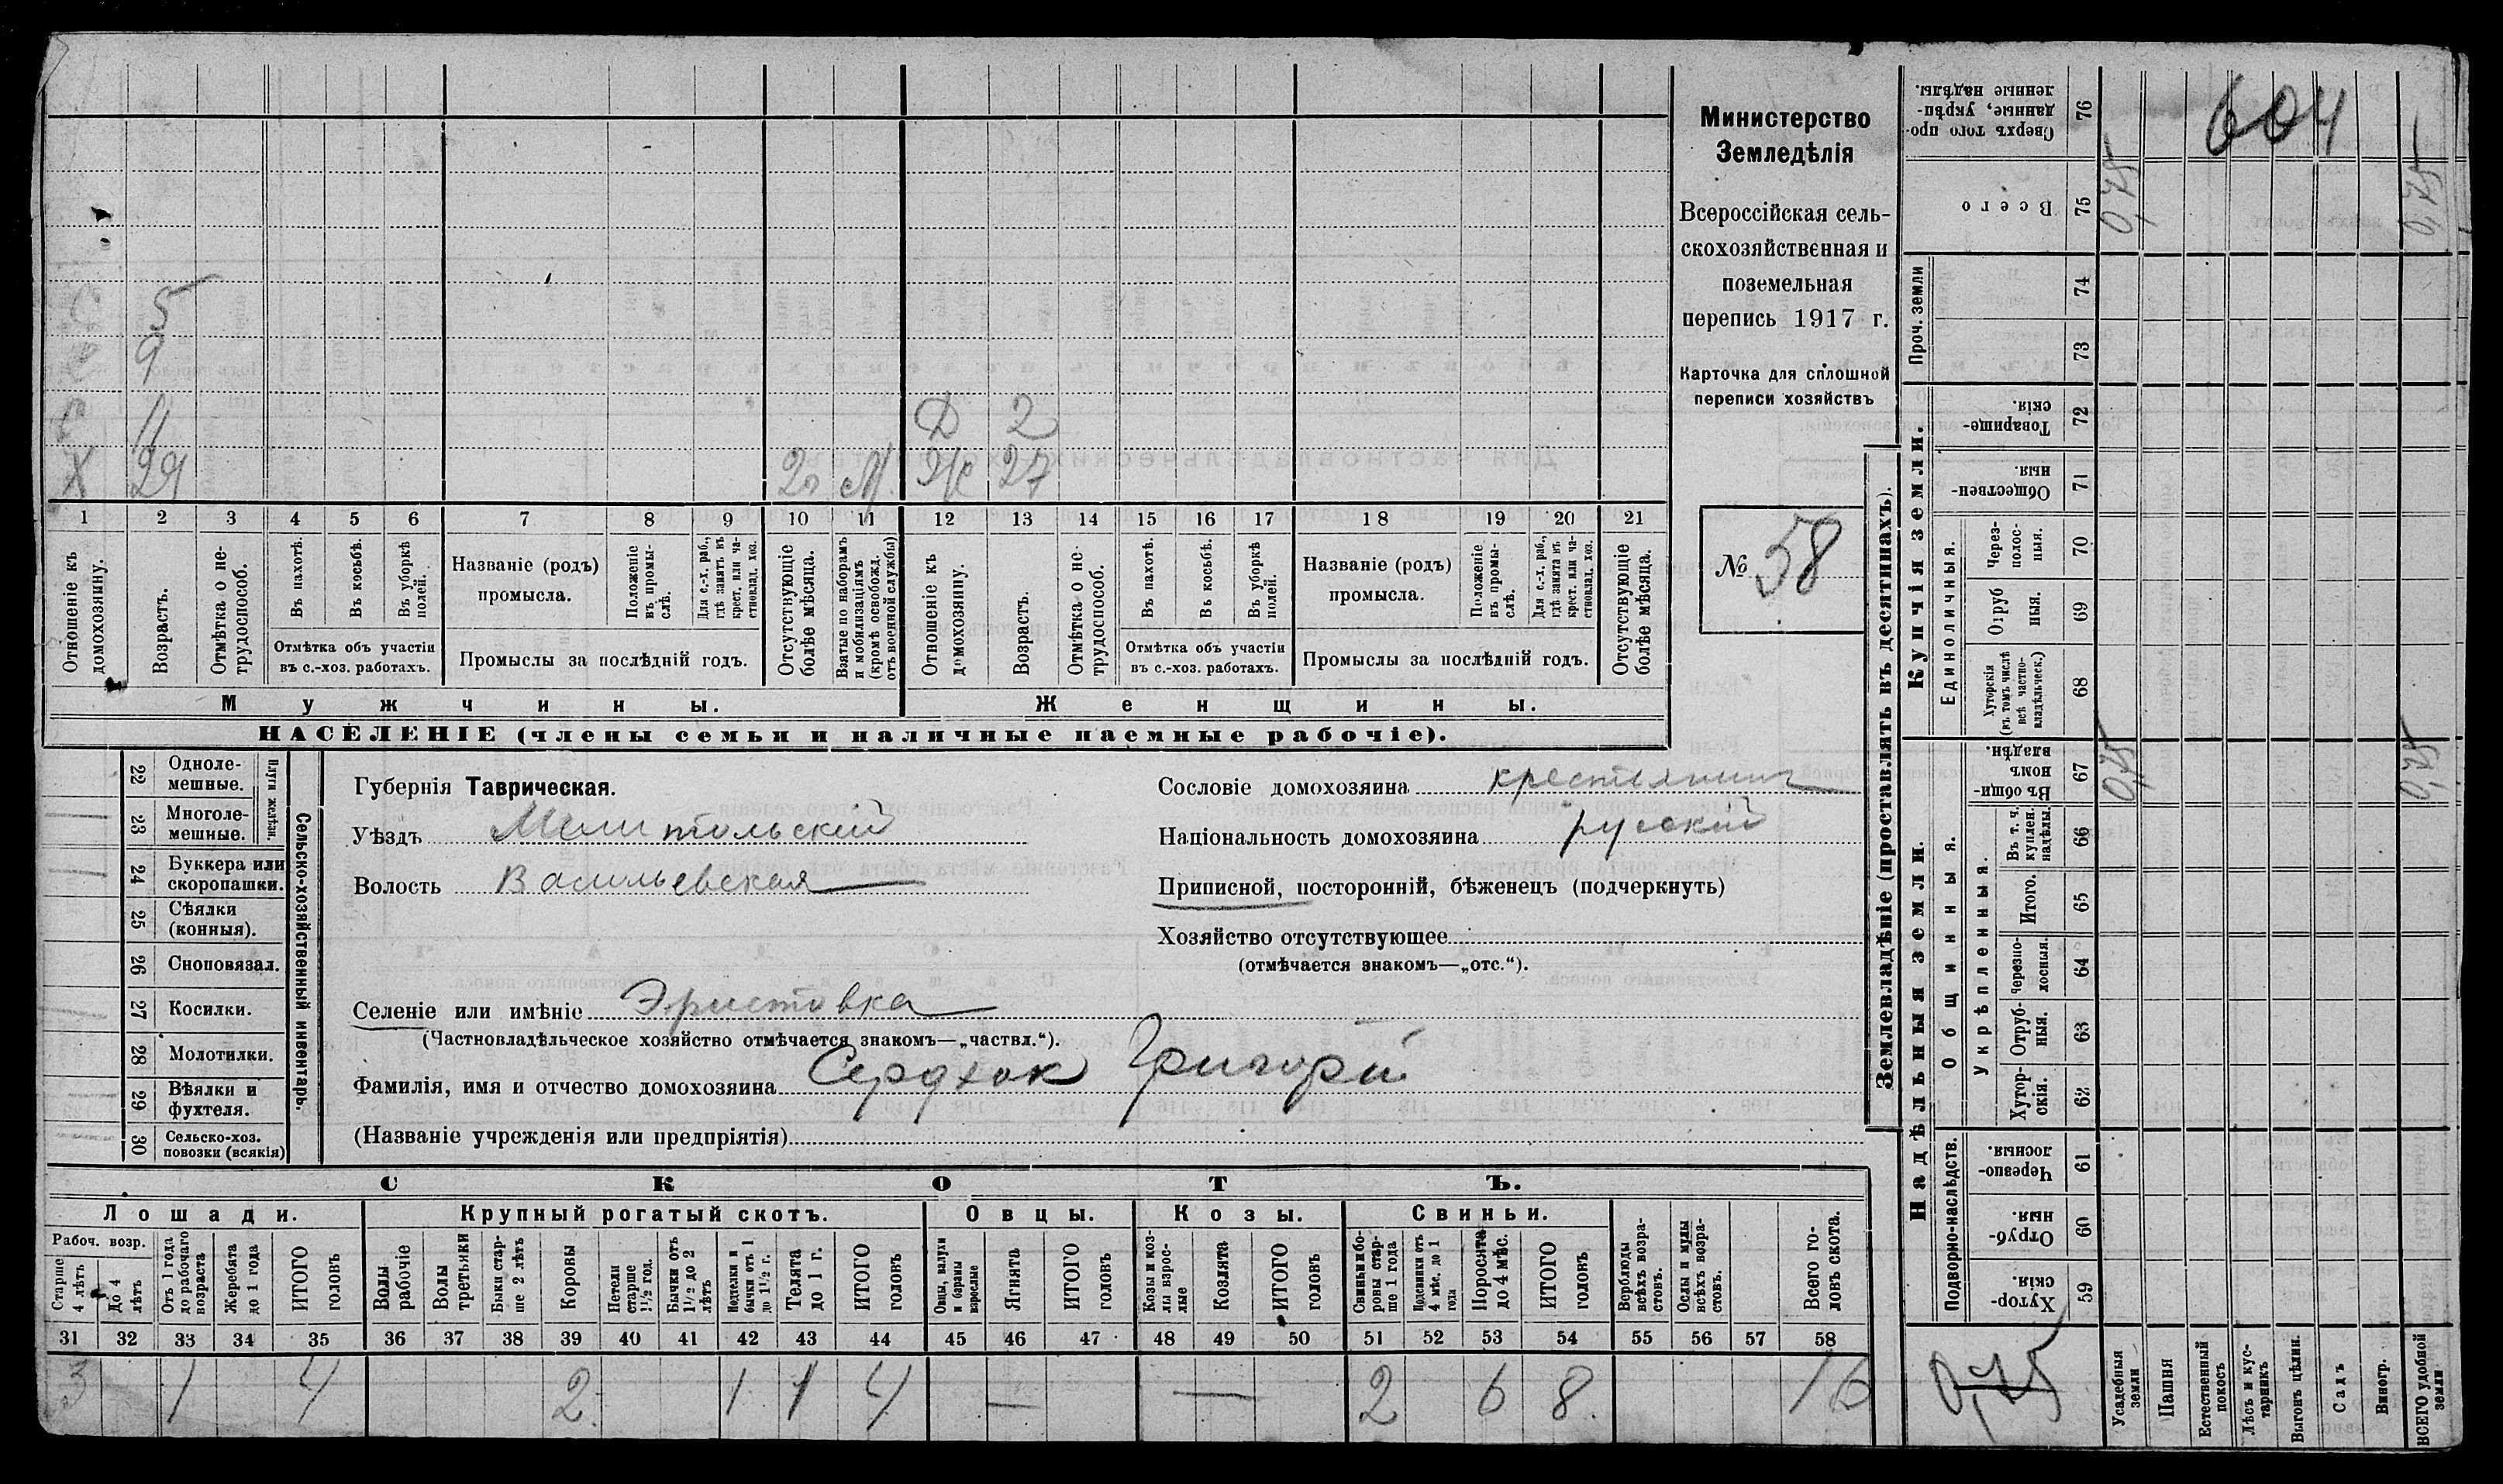 Министерство
Земледѣлія
Всероссійская сель-
скохозяйственная и
поземельная
перепись 1917 г.
Карточка для сплошной
переписи хозяйствъ
№ 58
604
С 5
С 9
С 11 Д 2
Х 29 2 г М. Ж 27
1 2 3 4 5 6 7 8 9 10 11 12 13 14 15 16 17 18 19 20 21
Отношеніе къ домохозяину.
Возрастъ.
Отмѣтка о не-трудоспособ.
Въ пахотѣ.
Въ косьбѣ.
Въ уборкѣ полей.
Отмѣтка объ участіи
въ с.-хоз. работахъ.
Названіе (родъ)
промысла.
Положеніе въ промы-слѣ.
Для с.-х. раб., гдѣ занятъ въ крест. или ча-стновлад. хоз.
Промыслы за послѣдній годъ.
Отсутствующіе болѣе мѣсяца.
Взятые по наборамъ и мобилизаціямъ (кромѣ освобожд. отъ военной службы)
Отношеніе къ домохозяину.
Возрастъ.
Отмѣтка о не-трудоспособ.
Въ пахотѣ.
Въ косьбѣ.
Въ уборкѣ полей.
Отмѣтка объ участіи
въ с.-хоз. работахъ.
Названіе (родъ)
промысла.
Положеніе въ промы-слѣ.
Для с.-х. раб., гдѣ занята въ крест. или ча-стновлад. хоз.
Промыслы за послѣдній годъ.
Отсутствующіе болѣе мѣсяца.
Мужчины.
Женщины.
НАСЕЛЕНІЕ (члены семьи и наличные наемные рабочіе).
22 Одноле-мешные.
23 Многоле-мешные.
Плуги желѣзн.
24 Буккера или скоропашки.
25 Сѣялки (конныя).
26 Сноповязал.
27 Косилки.
28 Молотилки.
29 Вѣялки и фухтеля.
30 Сельско-хоз. повозки (всякія)
Сельско-хозяйственный инвентарь.
Губернія Таврическая.
Уѣздъ Мелитопольскій
Волость Васильевская
Сословіе домохозяина крестьянин
Національность домохозяина русскій
Приписной, посторонній, бѣженецъ (подчеркнуть)
Хозяйство отсутствующее
(отмѣчается знакомъ—„отс.“).
Селеніе или имѣніе Эристовка
(Частновладѣльческое хозяйство отмѣчается знакомъ—„частвл.“).
Фамилія, имя и отчество домохозяина Сердюк Григорій
(Названіе учрежденія или предпріятія)
СКОТЪ.
Лошади. Крупный рогатый скотъ. Овцы. Козы. Свиньи.
Рабоч. возр.
Старше 4 лѣтъ
До 4 лѣтъ
Отъ 1 года до рабочаго возраста
Жеребята до 1 года
ИТОГО головъ
Волы рабочіе
Волы третьяки
Быки стар-ше 2 лѣтъ
Коровы
Нетели старше 1½ год.
Бычки отъ 1½ до 2 лѣтъ
Нетелки и бычки отъ 1 до 1½ г.
Телята до 1 г.
ИТОГО головъ
Овцы, валухи и бараны взрослые
Ягнята
ИТОГО головъ
Козы и коз-лы взрос-лые
Козлята
ИТОГО головъ
Свиньи и бо-ровы стар-ше 1 года
Подсвинки отъ 4 мѣс. до 1 года
Поросята до 4 мѣс.
ИТОГО головъ
Верблюды всѣхъ возра-стовъ.
Ослы и мулы всѣхъ возра-стовъ.
Всего го-ловъ скота.
31 32 33 34 35 36 37 38 39 40 41 42 43 44 45 46 47 48 49 50 51 52 53 54 55 56 57 58
3 1 4 2 1 1 4 — — 2 6 8 16
Землевладѣніе (проставлять въ десятинахъ).
Купчія земли.
Надѣльныя земли.
Сверхъ того про-данные, укрѣп-ленные надѣлы. 76
Всего 75 0,75 0,75
Проч. земли 74
73
Товарище-скія. 72
Обществен-ныя. 71
Единоличныя.
Через-полос-ныя. 70
Отруб ныя. 69
Хуторскія (въ томъ числѣ всѣ частно-владѣльческ.) 68
Въ общи-номъ владѣн. 67 0,75 0,75
Общинныя.
Укрѣпленныя.
Въ т. ч. куплен. надѣлы 66
Итого. 65
Черезпо-лосныя. 64
Отруб-ныя. 63
Хутор-скія. 62
Подворно-наслѣдств.
Черезпо-лосныя. 61
Отруб-ныя. 60
Хутор-скія. 59
0,75
Усадебныя земли
Пашня
Естественный покосъ
Лѣсъ и кус-тарникъ
Выгонъ цѣлин.
Садъ
Виногр.
ВСЕГО удобной земли